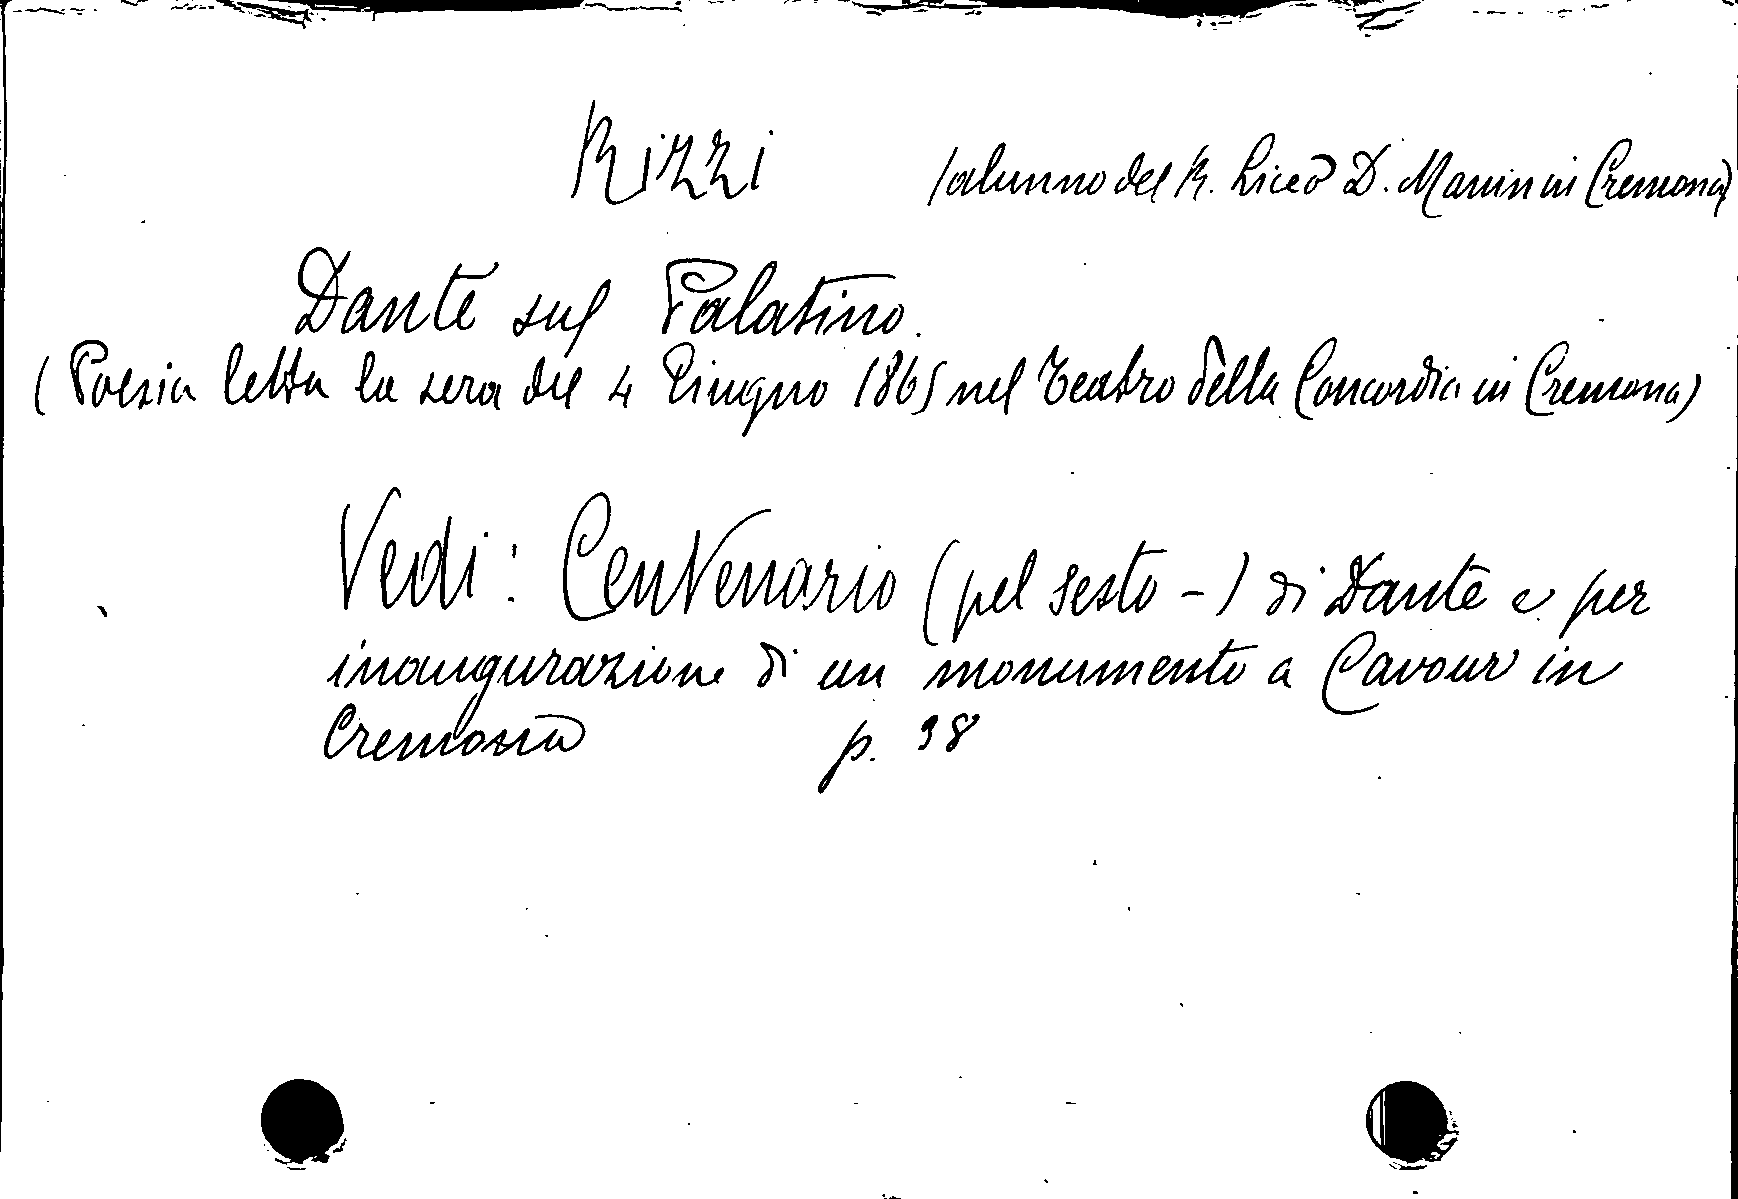 Rizzi (alunno del R. Liceo D. Manin in Cremona)
Dante sul Palatino.
(Poesia letta la sera del 4 Giugno 1865 nel Teatro della Concordia in Cremona)
Vedi: Centenario (pel sesto -) di Dante e per
inaugurazione di un monumento a Cavour in
Cremona p. 38